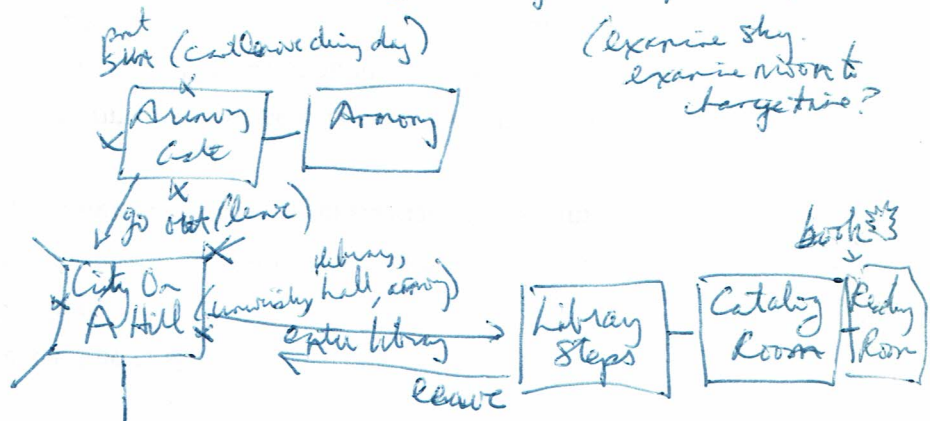 (can't leave during day)
(examine sky.
examine moon to
change time?
Armory
Gate
Armory
go out (leave)
book
City On
A Hill
library,
(university, hall, armory)
enter library
leave
Library
Steps
Catalog
Room
Reading
Room